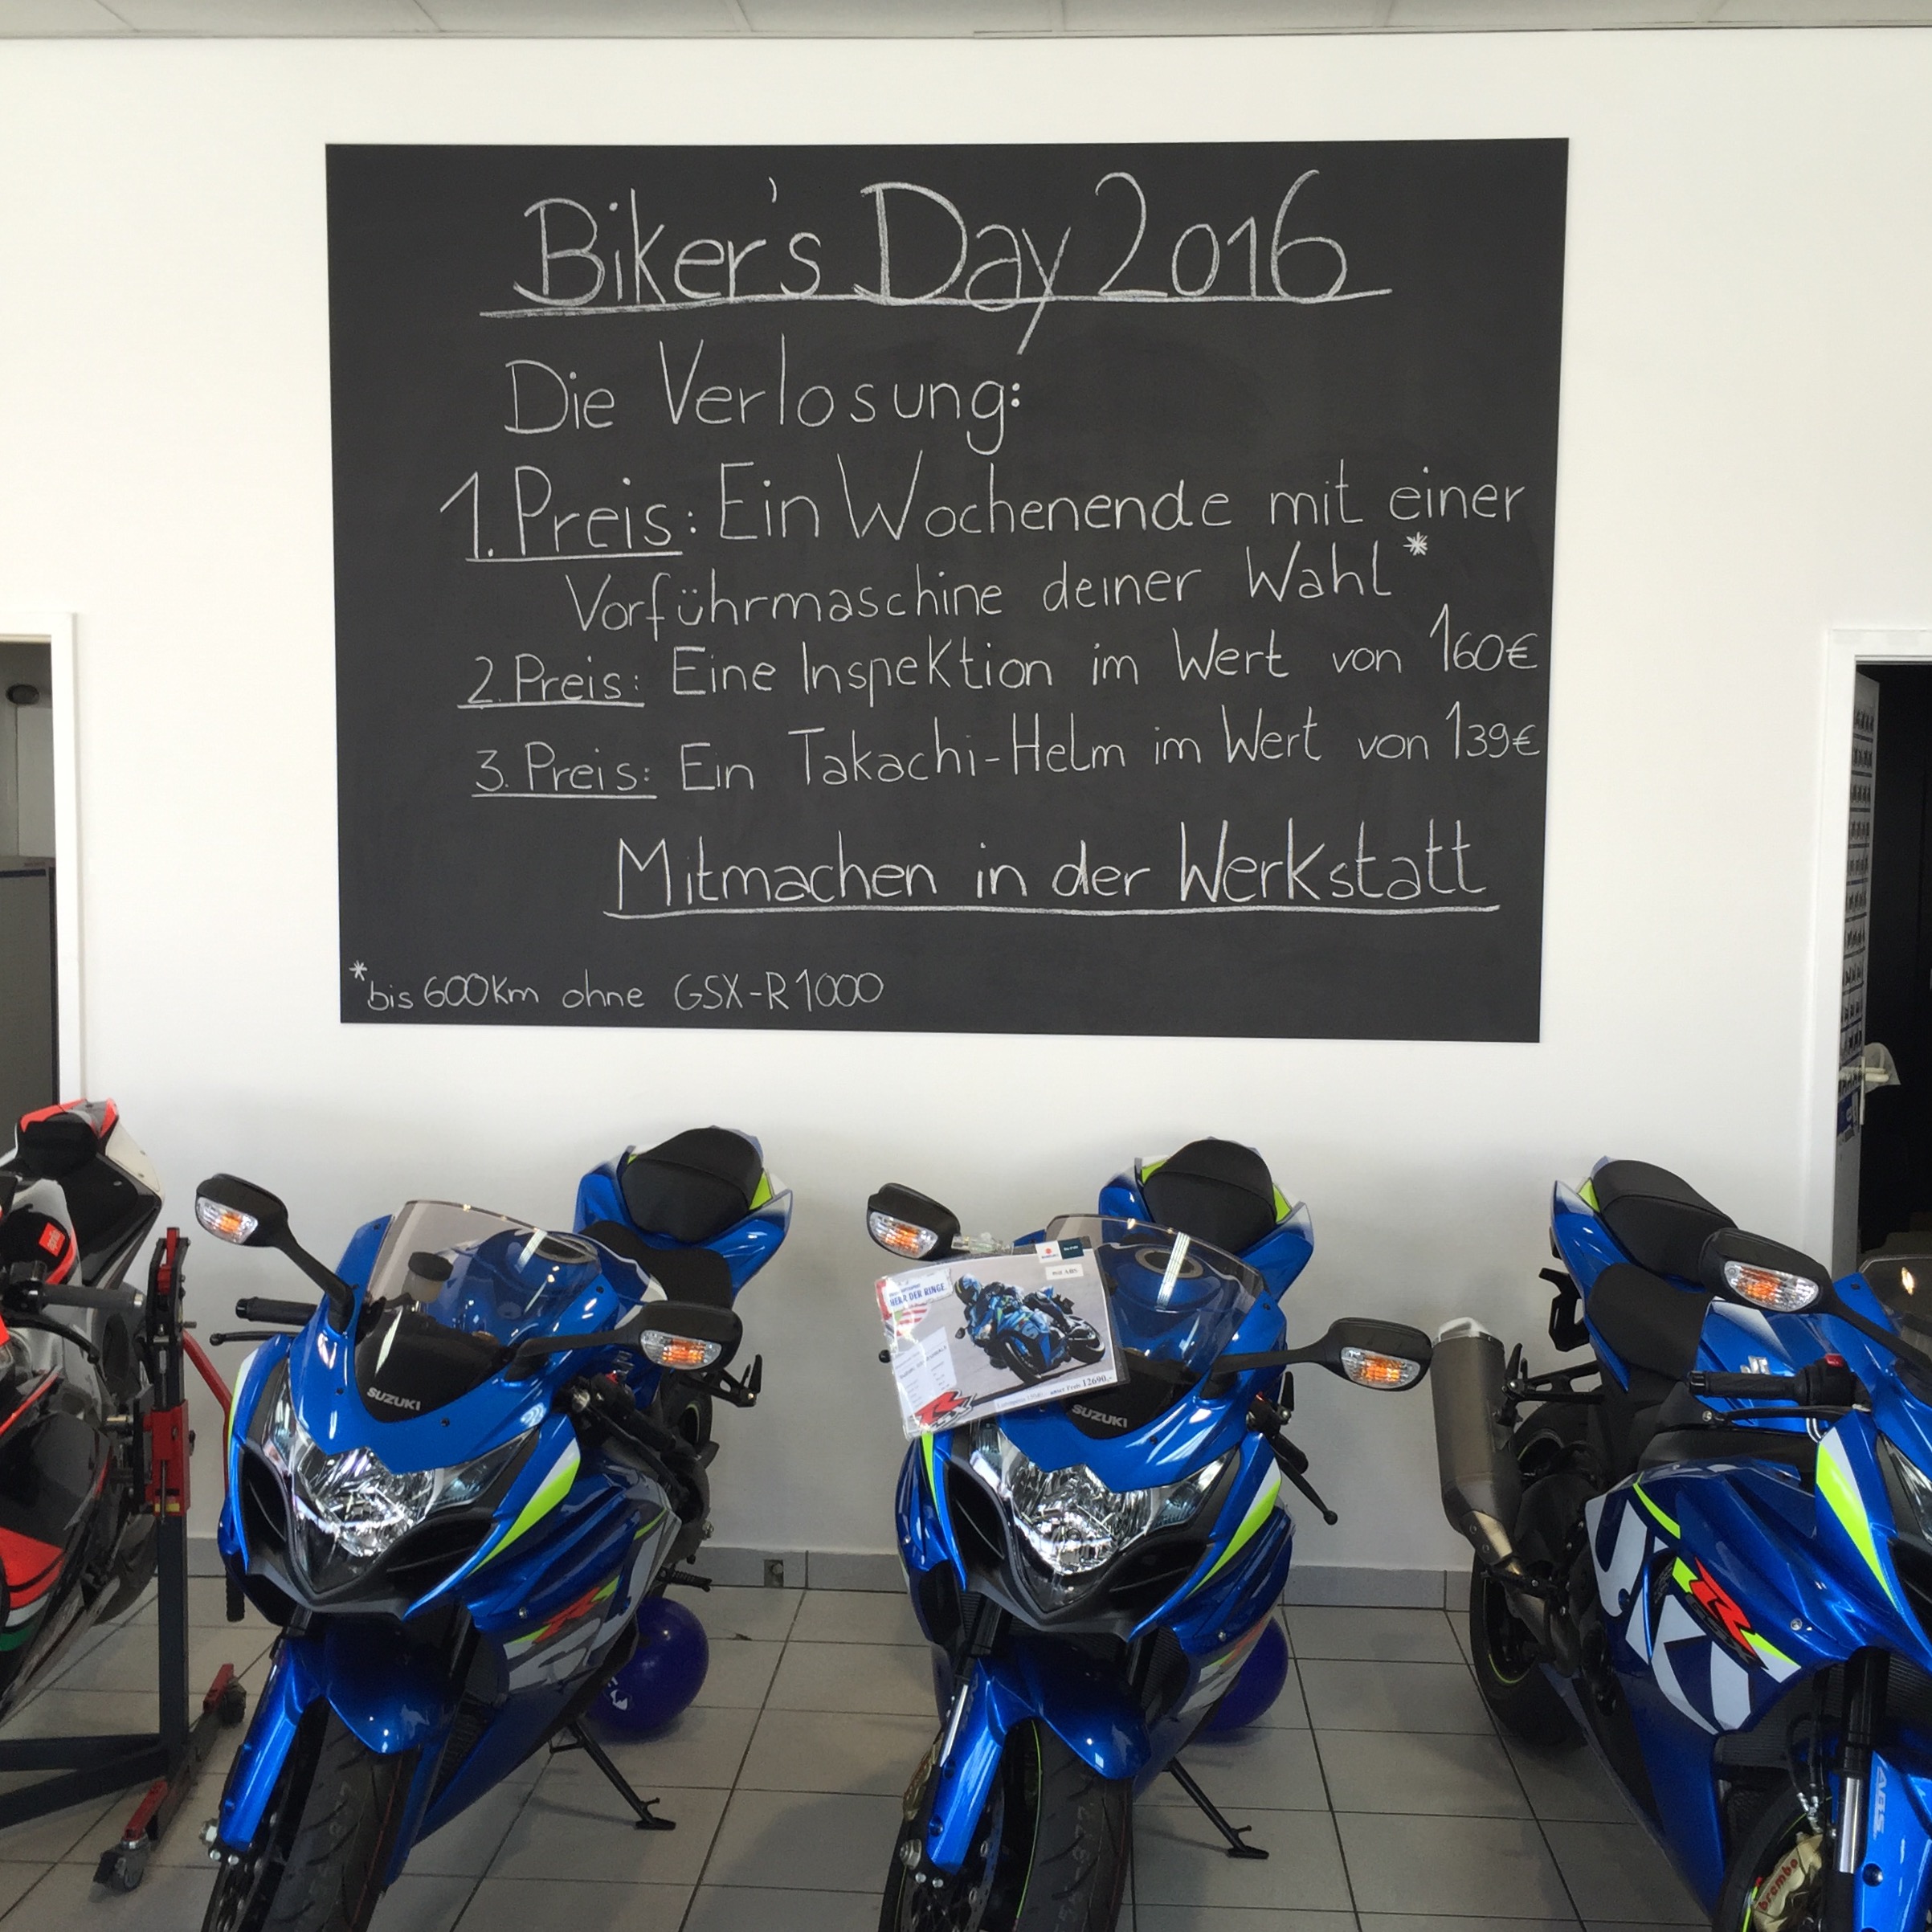 Biker's Day 2016
Die Verlosung:
1. Preis: Ein Wochenende mit einer
Vorführmaschine deiner Wahl*
2. Preis: Eine Inspektion im Wert von 160€
3. Preis: Ein Takachi-Helm im Wert von 139€
Mitmachen in der Werkstatt
*bis 600Km ohne GSX-R1000
HERR DER RINGE
unser Preis 12690,-
SUZUKI
SUZUKI
R
ABS
brembo